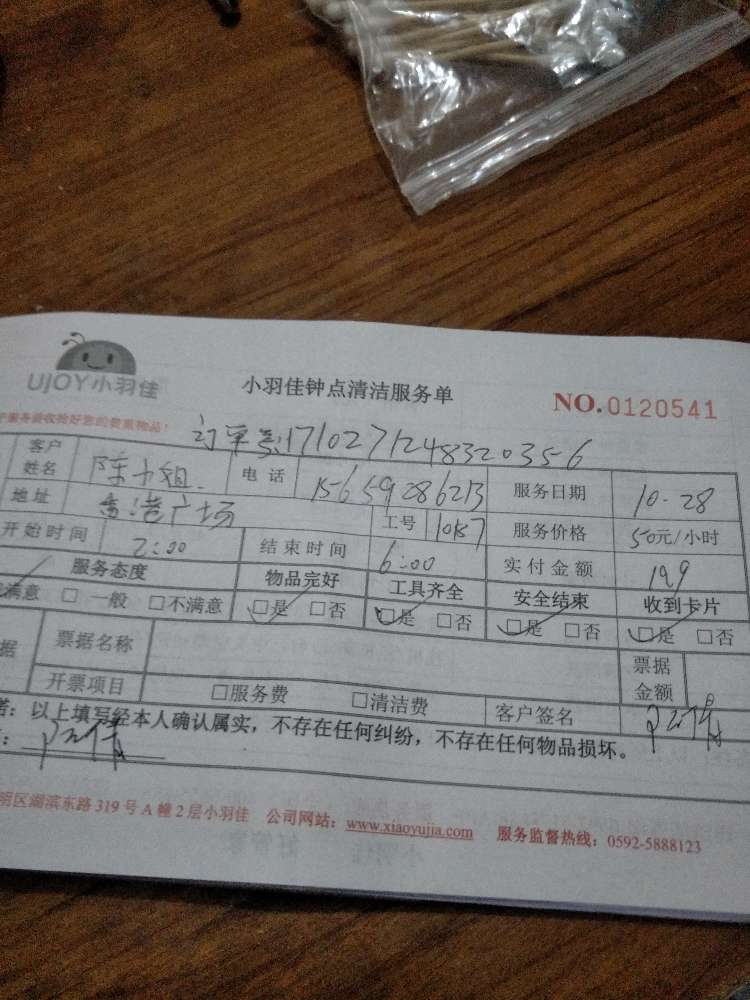 UJOY小羽佳
小羽佳钟点清洁服务单
NO.0120541
服务验收拾好您的贵重物品!
订单号:1710271248320356
客户姓名 陈小姐 电话 15659286213 服务日期 10-28
地址 香港广场 工号 10157 服务价格 50元/小时
开始时间 2:00 结束时间 6:00 实付金额 199
服务态度 物品完好 工具齐全 安全结束 收到卡片
满意 □ 一般 □不满意 □是 □否 □是 □否 □是 □否 □是 □否
据 票据名称 票据金额
开票项目 □服务费 □清洁费 客户签名
诺:以上填写经本人确认属实,不存在任何纠纷,不存在任何物品损坏。
明区湖滨东路319号A幢2层小羽佳 公司网站:www.xiaoyujia.com 服务监督热线:0592-5888123